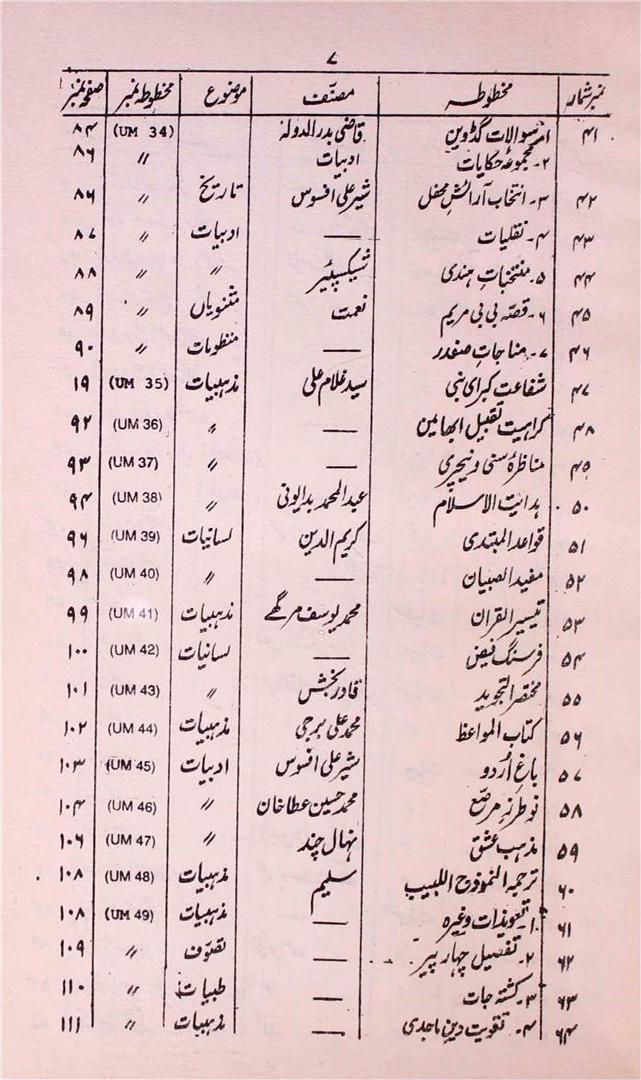 ۷
نمبر شمار مخطوطہ مصنّف موضوع مخطوطہ نمبر صفحہ نمبر
۴۱ ۱۔ سوالات گڈوین قاضی بدرالدولہ (UM 34) ۸۴
۲۔ مجموعۂ حکایات ادبیات 〃 ۸۶
۴۲ ۳۔ انتخاب آرائش محفل شیر علی افسوس تاریخ 〃 ۸۶
۴۳ ۴۔ نقلیات — ادبیات 〃 ۸۷
۴۴ ۵۔ منتخبات ہندی شیکسپئیر 〃 〃 ۸۸
۴۵ ۶۔ قصّہ بی بی مریم نعمت مثنویاں 〃 ۸۹
۴۶ ۷۔ مناجات صفدر — منظومات 〃 ۹۰
۴۷ شفاعت کبرای نبی سید غلام علی مذہبیات (UM 35) ۱۹
۴۸ کراہیت تقبیل ابھامین — 〃 (UM 36) ۹۲
۴۹ مناظرۂ سنی و نیچری — 〃 (UM 37) ۹۳
۵۰ ہدایت الاسلام عبدالمحمد بدایونی 〃 (UM 38) ۹۴
۵۱ قواعد المبتدی کریم الدین لسانیات (UM 39) ۹۶
۵۲ مفید الصبیان — 〃 (UM 40) ۹۸
۵۳ تیسیر القران محمد یوسف مرگھے مذہبیات (UM 41) ۹۹
۵۴ فرسنگ فیض — لسانیات (UM 42) ۱۰۰
۵۵ مختصر التجوید قادر بخش 〃 (UM 43) ۱۰۱
۵۶ کتاب المواعظ محمد علی برجی مذہبیات (UM 44) ۱۰۲
۵۷ باغ اُردو شیر علی افسوس ادبیات (UM 45) ۱۰۳
۵۸ نو طرز مرصّع محمد حسین عطا خان 〃 (UM 46) ۱۰۴
۵۹ مذہب عشق نہال چند 〃 (UM 47) ۱۰۶
۶۰ ترجمہ النموذح اللبیب سلیم مذہبیات (UM 48) ۱۰۸
۶۱ ۱۔ تعویذات وغیرہ — مذہبیات (UM 49) ۱۰۸
۶۲ ۲۔ تفصیل چہار پیر — تصوّف 〃 ۱۰۹
۶۳ ۳۔ کشتہ جات — طبیات 〃 ۱۱۰
۶۴ ۴۔ تقویت دین ماجدی — مذہبیات 〃 ۱۱۱